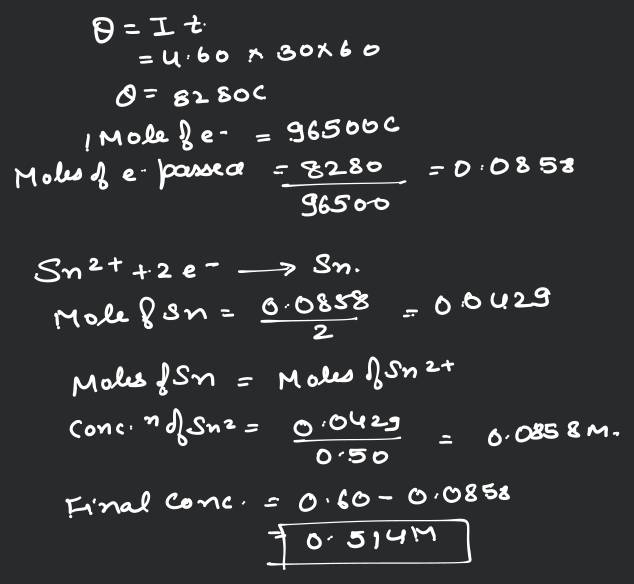 Q = I t
= 4.60 × 30×60
Q = 8280C
1 Mole of e- = 96500C
Moles of e- passed = 8280 / 96500 = 0.0858
Sn2+ + 2e- → Sn.
Mole of Sn = 0.0858 / 2 = 0.0429
Moles of Sn = Moles of Sn2+
Conc.n of Sn2 = 0.0429 / 0.50 = 0.0858M.
Final Conc. = 0.60 - 0.0858
= 0.514M